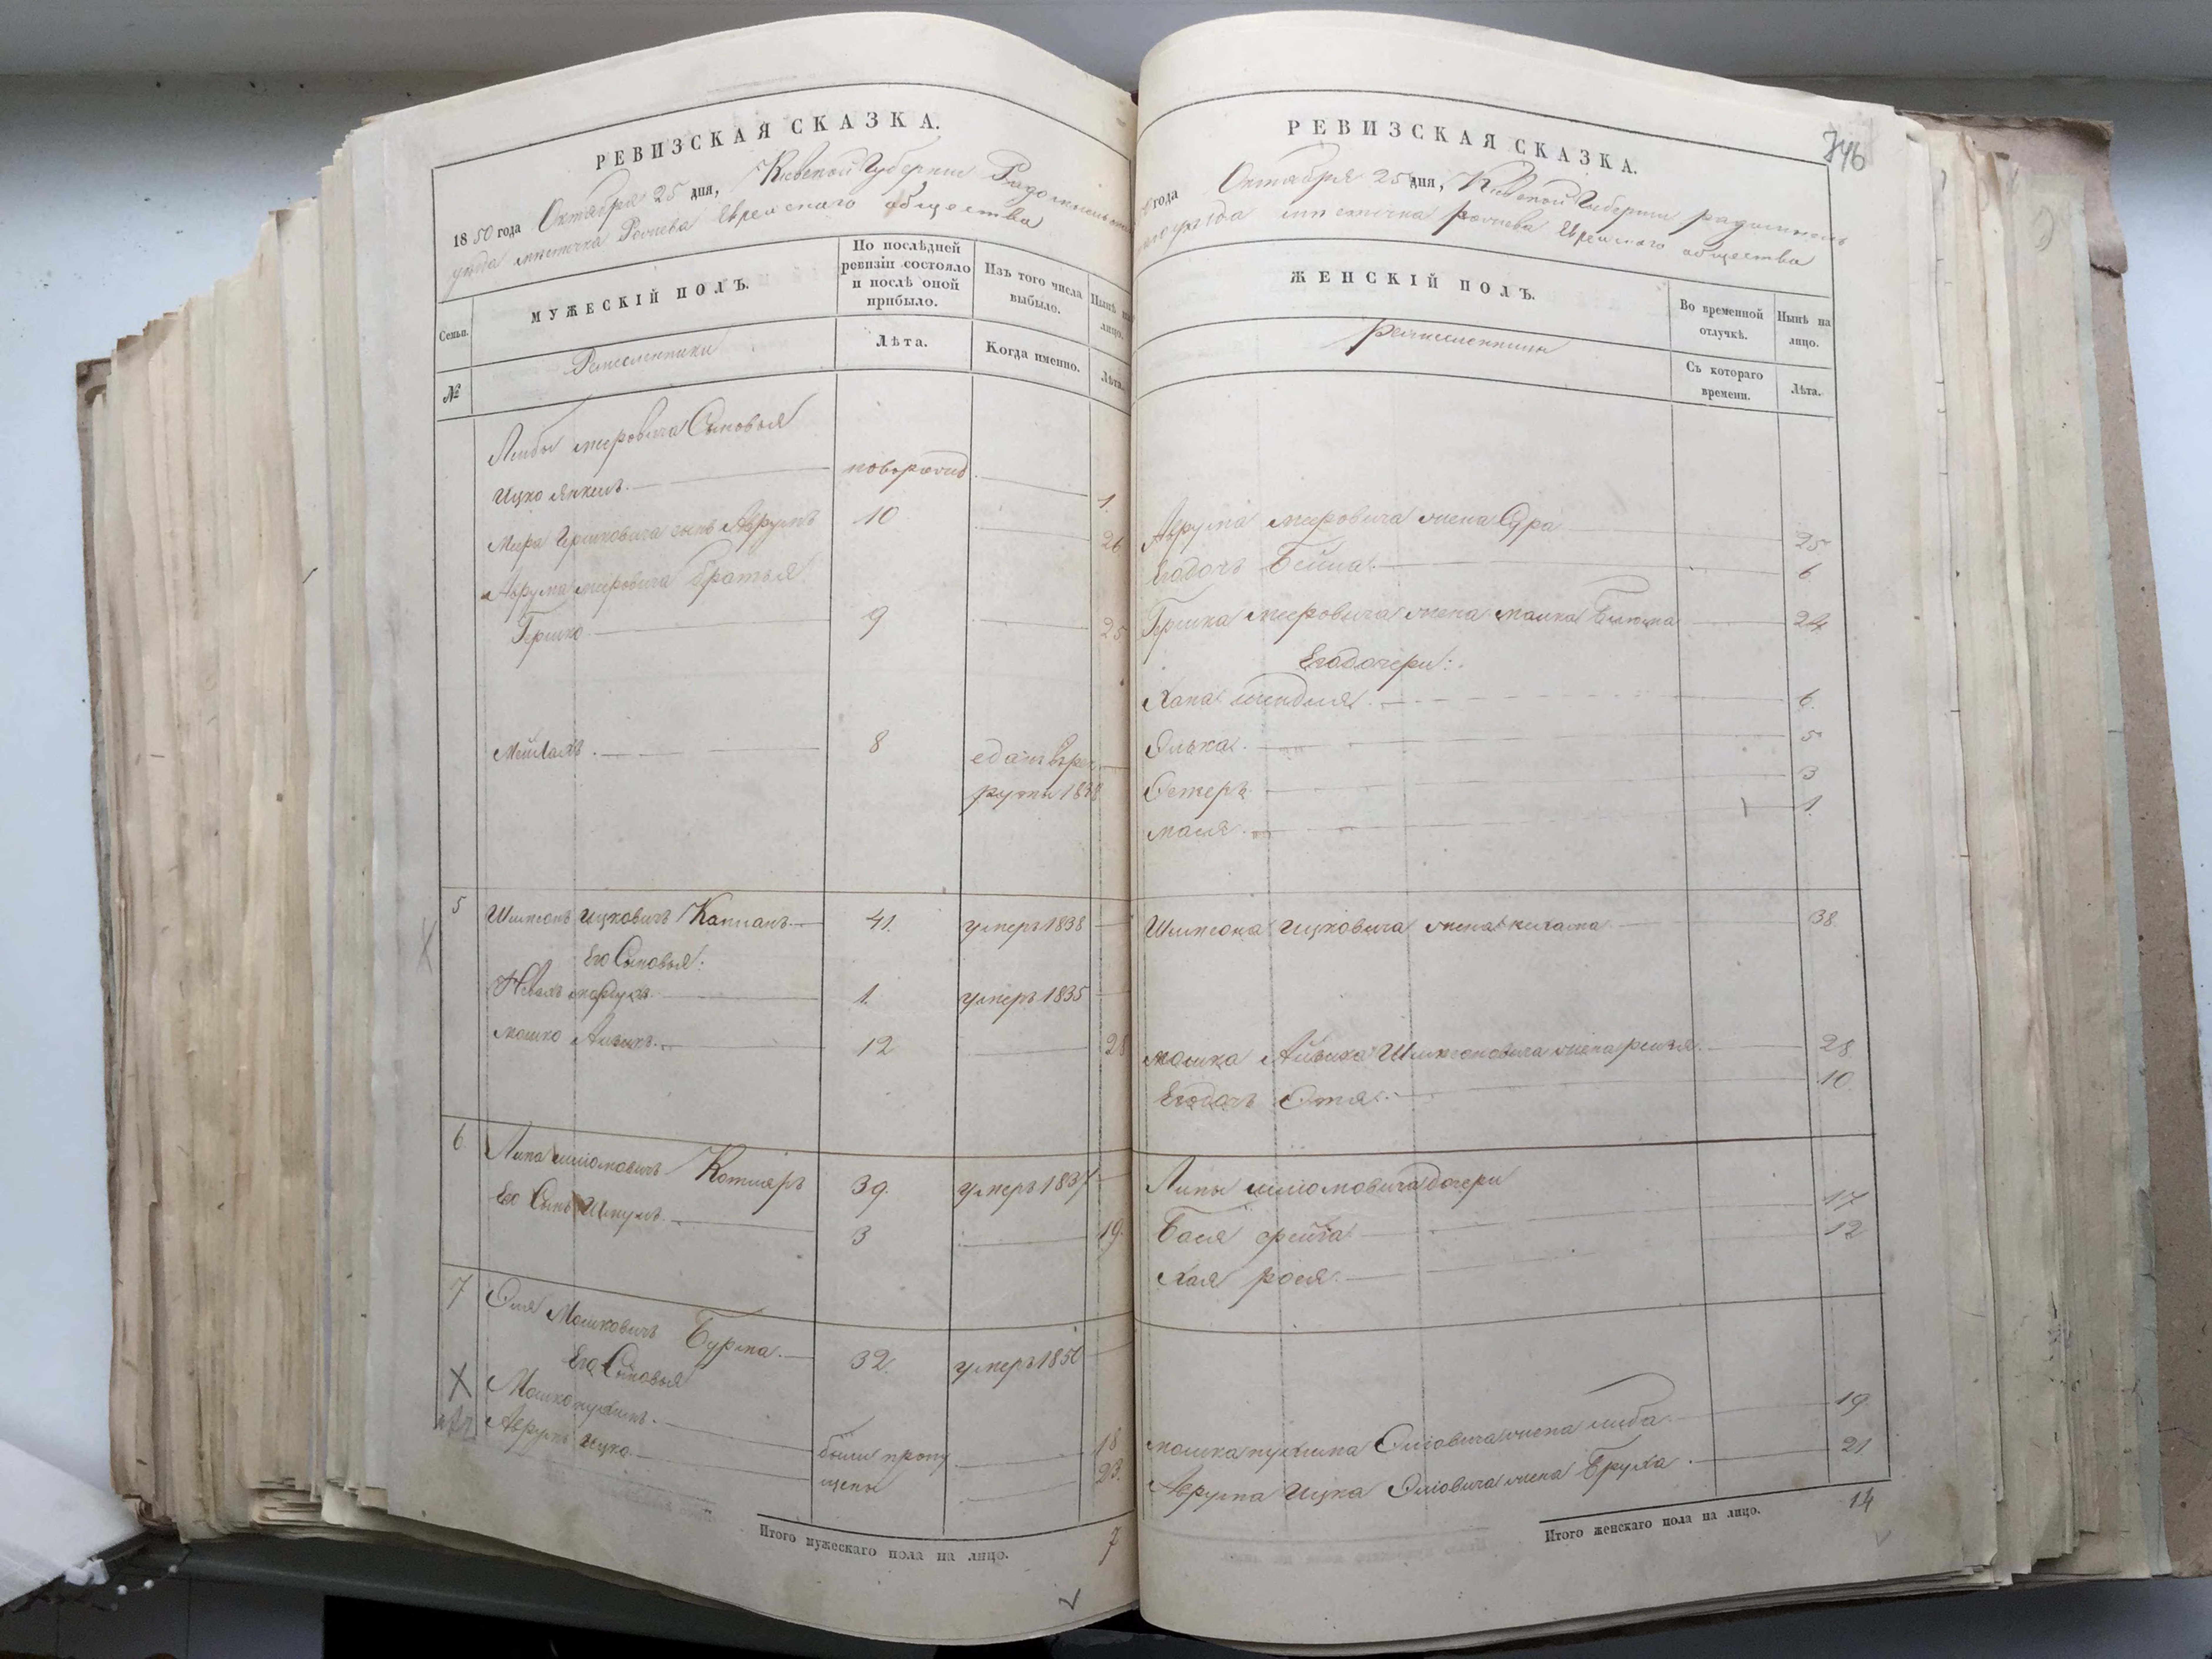 РЕВИЗСКАЯ СКАЗКА.
1850 года Октября 25 дня, Киевской Губернии Радомысльскаго
уезда местечка Рочева Еврейскаго общества
Семьи.
МУЖЕСКІЙ ПОЛЪ.
По послѣдней ревизіи состояло и послѣ оной прибыло.
Изъ того числа выбыло.
Нынѣ на лицо.
№
Ремесленники
Лѣта.
Когда именно.
Лѣта.
Лейбы мееровича Сыновья
Ицко Янкель новорожд 1
Меера Гершковича сынъ Аврумъ 10 26
Аврума мееровича братья
Гершко 9 25
8 рекруты 1838
5 Шимсонъ Ицковичъ Каплан 41. умеръ 1838
Его Сыновья:
1. умеръ 1835
мошко Айзикъ 12 28
6 Липа шліомовичъ Котляръ 39. умеръ 1837
Его Сынъ Шмуль 3 19.
7 Эля Мошковичъ Бурма 32. умеръ 1850
Его Сыновья
Мошко нухимъ 18
Аврумъ Ицко были пропущены 23.
Итого мужескаго пола на лицо. 7
746
РЕВИЗСКАЯ СКАЗКА.
года Октября 25 дня, Киевской Губернии радомысль
скаго уезда местечка рочева Еврейскаго общества
ЖЕНСКІЙ ПОЛЪ.
Во временной отлучкѣ.
Нынѣ на лицо.
ремесленники
Съ котораго времени.
Лѣта.
Аврума мееровича жена Сура 25
Его дочь Бейла 6
Гершка мееровича жена малка 24
Его дочери:
Хана шендля 6.
Элька 5
Эстеръ 3
мася 1.
Шимсона Ицковича жена 38
мошка Айзика Шимсоновича жена рейзя 28
Его дочь Этя 10
Липы шліомовича дочери
Бася фейга 17
Хая рося 12
мошка нухима Эліовича жена либа 19
Аврума Ицка Эліовича жена Бруха 21
Итого женскаго пола на лицо. 14